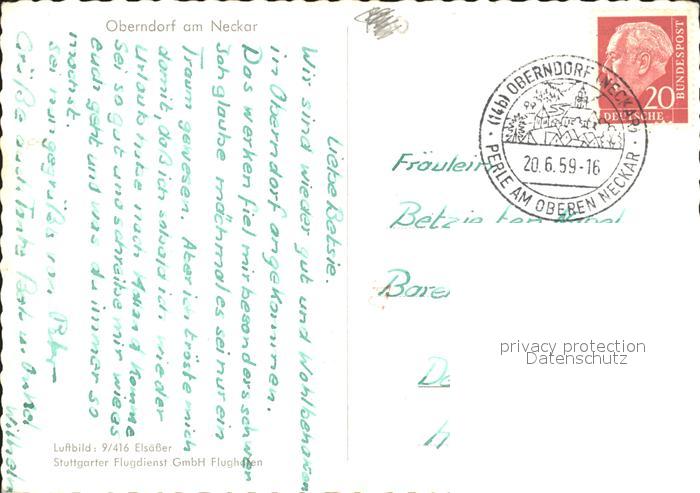 Oberndorf am Neckar
Liebe Betsie.
Wir sind wieder gut und Wohlbehalten
in Oberndorf angekommen.
Das werken fiel mir besonders schwer
Ich glaube mächmales sei nur ein
Traum gewesen. Aber ich tröste mich
damit, daß ich sobald ich wieder
Urlaub habe nach Holland komme
Sei so gut und schreibe mir wie es
euch geht und was du immer so
machst.
Sei nun gegrüßt von
Grüße auch Tante u. Onkel
Luftbild: 9/416 Elsäßer
Stuttgarter Flugdienst GmbH Flughafen
DEUTSCHE BUNDESPOST
20
(14b) OBERNDORF (NECKAR)
20.6.59-16
PERLE AM OBEREN NECKAR
Fräulein
privacy protection
Datenschutz